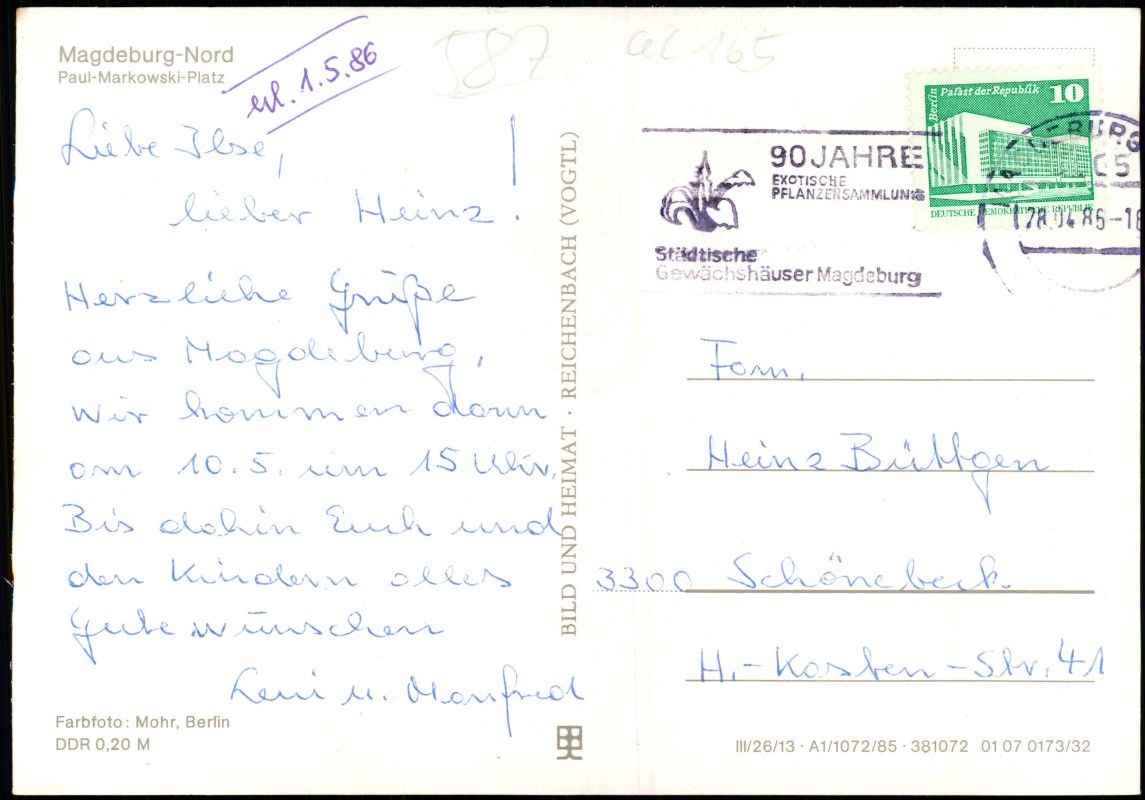 Magdeburg-Nord
Paul-Markowski-Platz
erl. 1.5.86
587
165
Liebe Ilse,
lieber Heinz.
Herzliche Grüße
aus Magdeburg,
Wir kommen dann
am 10.5. um 15 Uhr.
Bis dahin Euch und
den Kindern alles
Gute wünschen
Leni u. Manfred
Farbfoto: Mohr, Berlin
DDR 0,20 M
BILD UND HEIMAT · REICHENBACH (VOGTL)
90 JAHRE
EXOTISCHE
PFLANZENSAMMLUNG
Städtische
Gewächshäuser Magdeburg
Berlin Palast der Republik 10
DEUTSCHE DEMOKRATISCHE REPUBLIK
28.04.86-18
Fam.
Heinz Büttgen
3300 Schönebeck.
H.-Kasten-Str. 41
III/26/13 · A1/1072/85 · 381072 01 07 0173/32